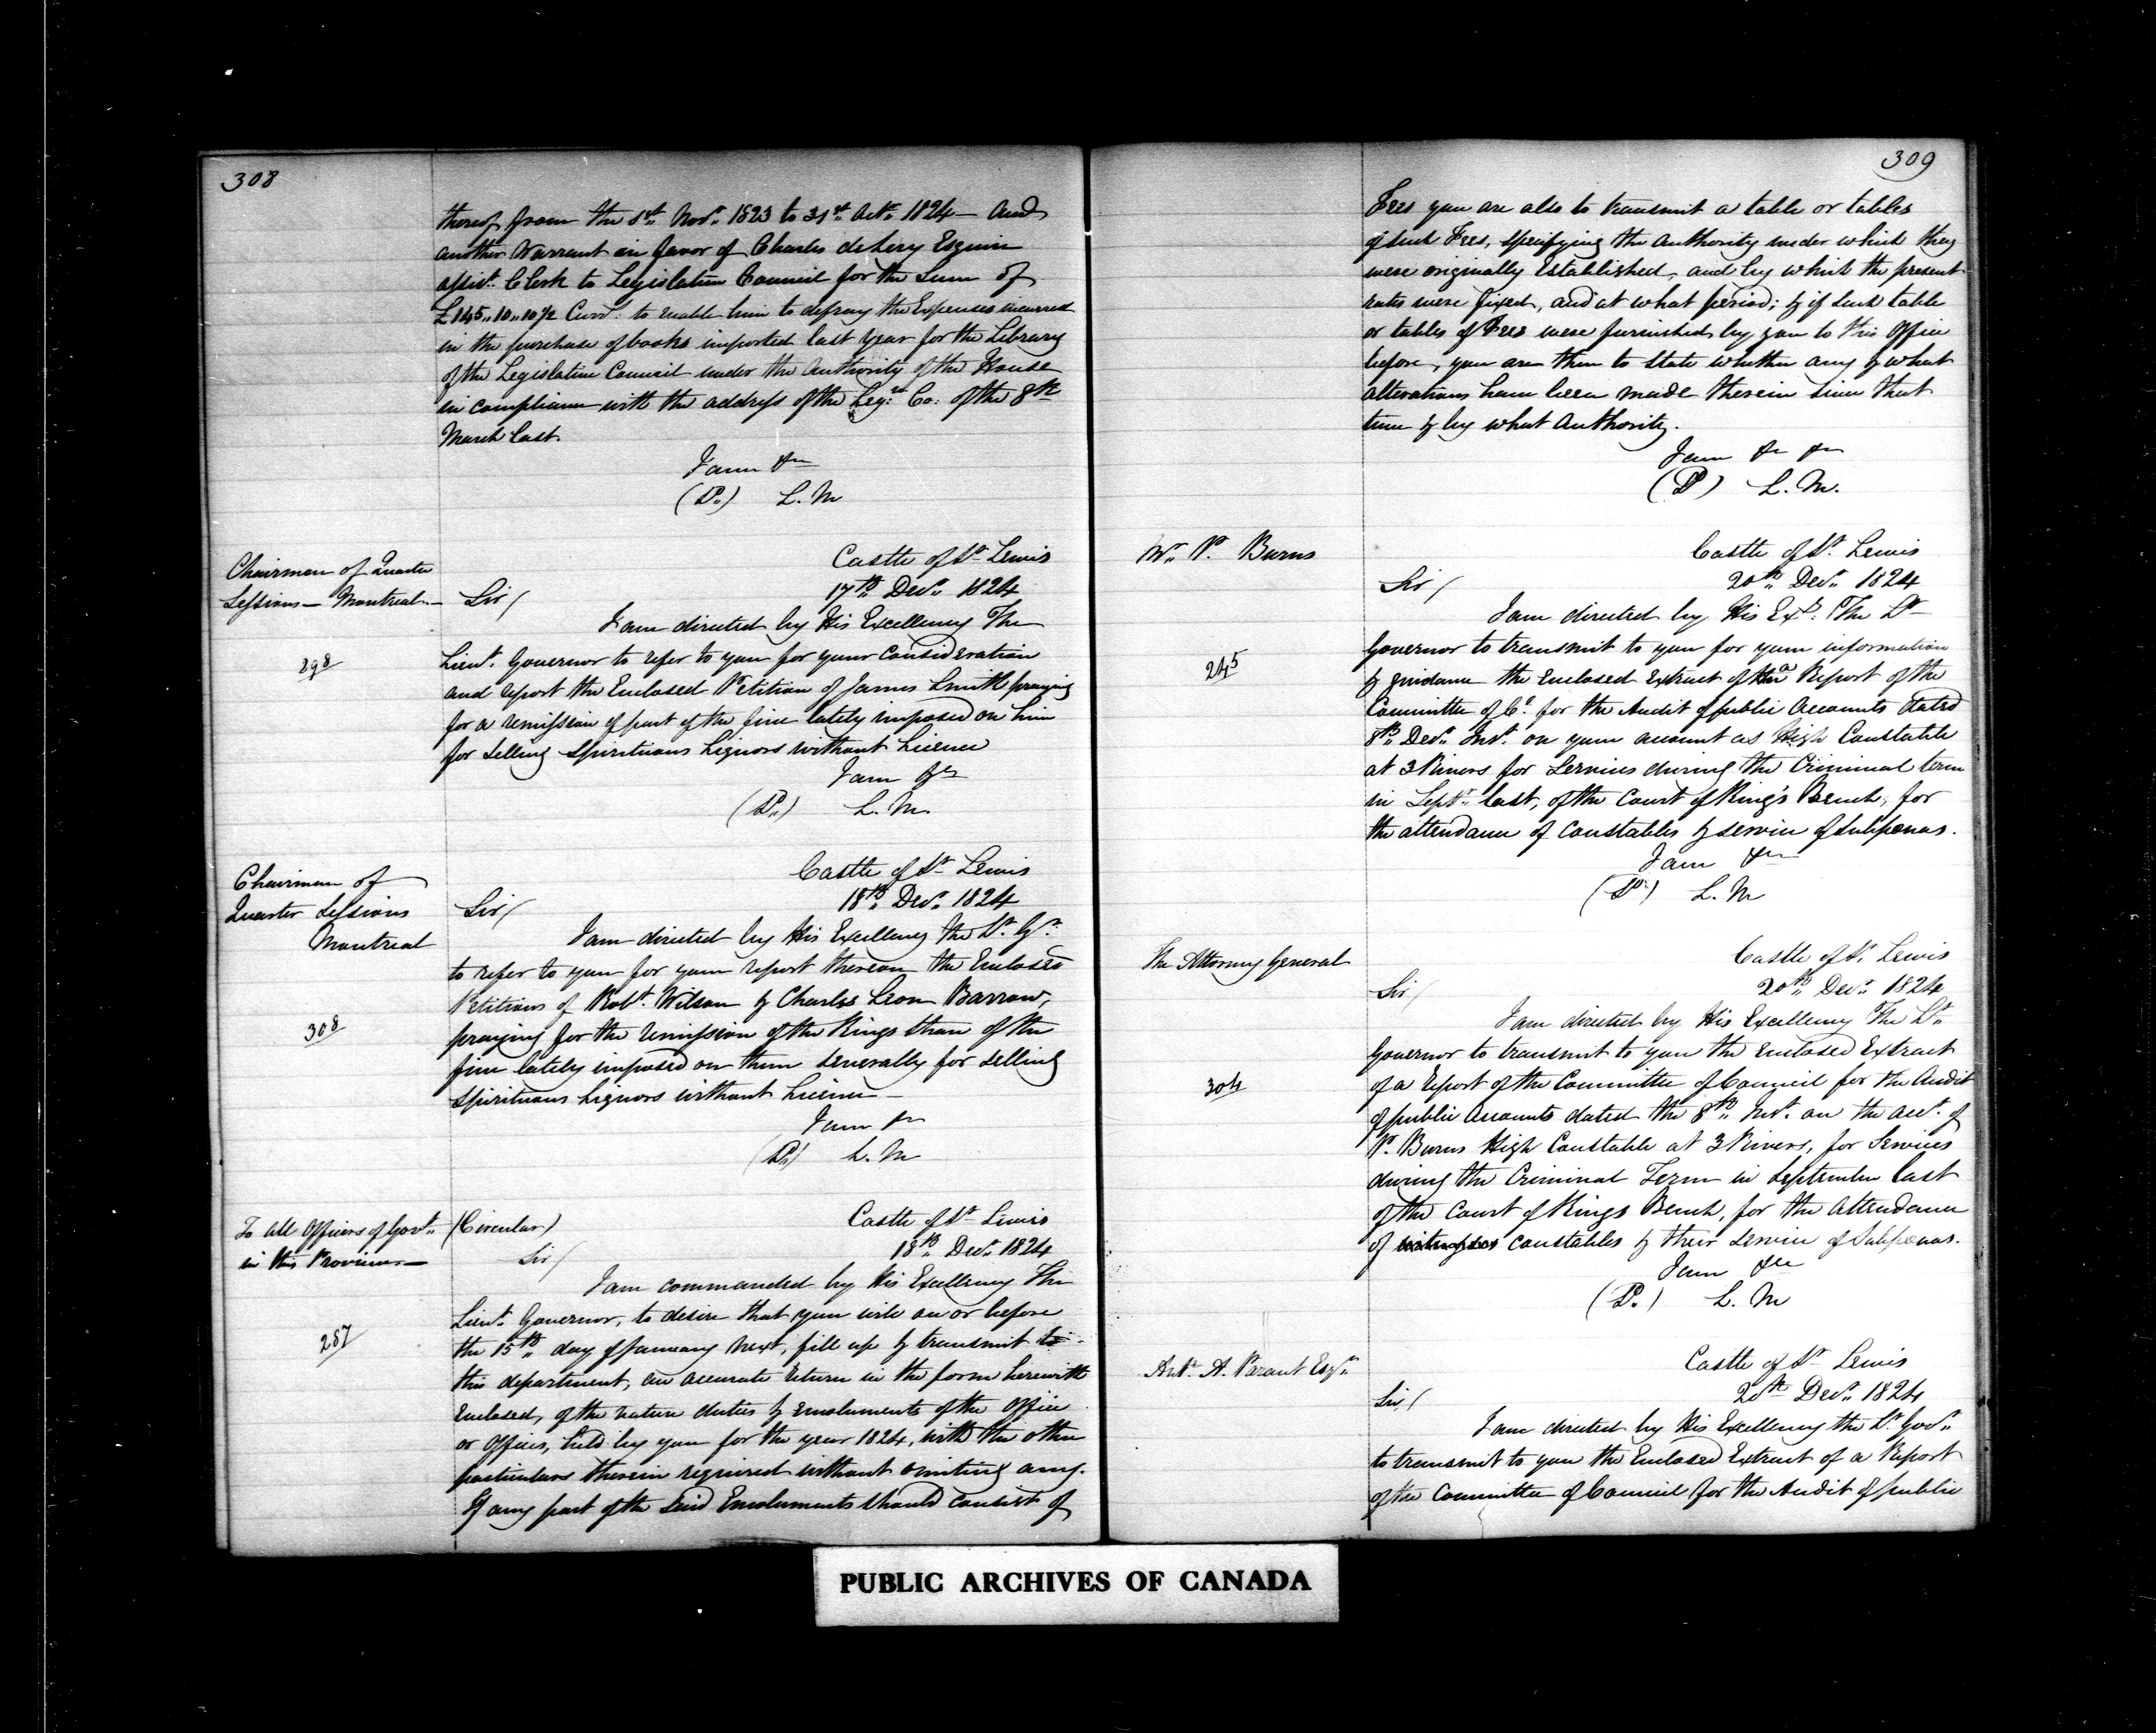 308
thereof from the 1st. Novr. 1823 to 31st. Octr. 1824 — and
another Warrant in favor of Charles deLery Esquire
assist. Clerk to Legislative Council for the Sum of
£145,,10,,10½ Curr. to enable him to defray the Expenses incurred
in the purchase of books imported last year for the Library
of the Legislative Council under the Authority of the House
in compliance with the address of the Leg:ve Co: of the 8th
March last.
I am &c
L. M
Chairman of Quarter
Sessions — Montreal —
298
Castle of St. Lewis
17th. Decr. 1824
Sir/
I am directed by His Excellency The
Lieut. Governor to refer to you for your Consideration
and report the Enclosed Petition of James Smith praying
for a remission of part of the fine lately imposed on him
for Selling Spirituous Liquors without Licence
I am &c
L. M.
Chairman of
Quarter Sessions
Montreal
308
Castle of St. Lewis
18th. Decr. 1824
Sir/
I am directed by His Excellency the Lt. Gr.
to refer to you for your report thereon the Enclosed
Petitions of Robt. Wilson & Charles Leon Barrow,
praying for the remission of the Kings share of the
fine lately imposed on them Severally for Selling
Spirituous Liquors without Licence —
I am &c
L. M
To All Officers of Govt.
in this Province —
287
(Circular)
Castle of St. Lewis
18th. Decr. 1824
Sir/
I am commanded by His Excellency The
Lieut. Governor, to desire that you will on or before
the 15th. day of January next, fill up & transmit to
this department, an accurate return in the form herewith
Enclosed, of the nature duties & Emoluments of the Office
or Offices, held by you for the year 1824, with the other
particulars therein required without omitting any.
If any part of the Said Emoluments should consist of
309
Fees you are also to transmit a table or tables
of such Fees, specifying the Authority under which they
were originally Established, and by which the present
rates were fixed, and at what period; & if such table
or tables of Fees were furnished by you to this Office
before, you are then to State whether any & what
alterations have been made therein since that
time & by what Authority.
I am &c &c
L. M.
Mr. P. Burns
245
Castle of St. Lewis
20th. Decr. 1824
Sir/
I am directed by His Exy: The Lt
Governor to transmit to you for your information
& guidance the Enclosed Extract of a Report of the
Committee of Cl. for the Audit of public Accounts dated
8th. Decr. Inst. on your account as High Constable
at 3 Rivers for Services during the Criminal term
in Septr. last, of the Court of King's Bench, for
the attendance of Constables & service of Subpœnas.
I am &c
L. M
The Attorney General
304
Castle of St. Lewis
20th. Decr. 1824
Sir/
I am directed by His Excellency The Lt.
Governor to transmit to you the Enclosed Extract
of a Report of the Committee of Council for the Audit
of public Accounts dated the 8th. Inst. on the acct. of
P. Burns High Constable at 3 Rivers, for Services
during the Criminal Term in September last
of the Court of Kings Bench, for the Attendance
of witnesses constables & their service of Subpœnas.
I am &c
L. M
Ant. A. Parant Esqr.
Castle of St. Lewis
20th Decr. 1824
Sir/
I am directed by His Excellency the Lt. Govr.
to transmit to you the Enclosed Extract of a Report
of the Committee of Council for the Audit of public
PUBLIC ARCHIVES OF CANADA